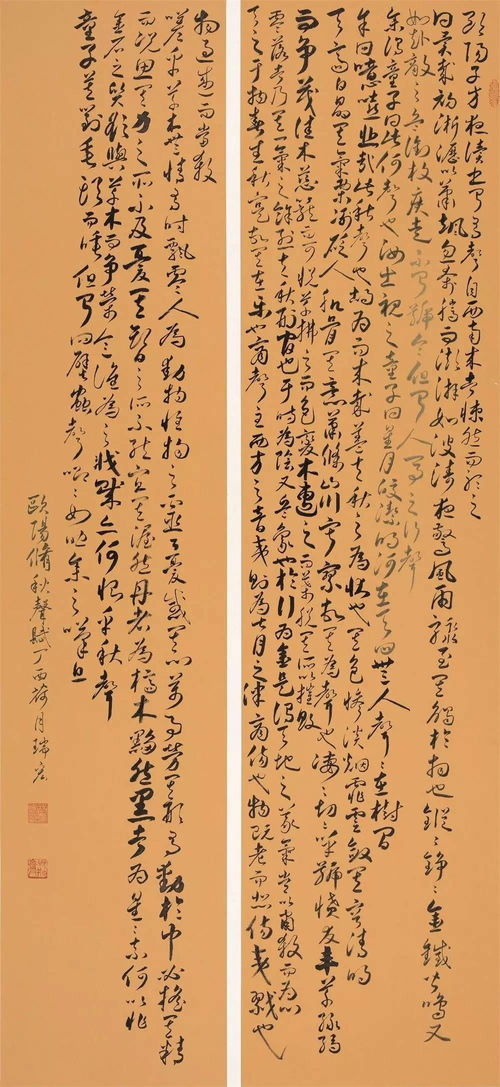 歐陽子方夜讀書聞有聲自西南來者悚然而聽之
曰異哉初淅瀝以蕭颯忽奔騰而澎湃如波濤夜驚風雨驟至其觸於物也鏦〻錚〻金鐵皆鳴又
如赴敵之兵銜枚疾走不聞號令但聞人馬之行聲
余謂童子曰此何聲也汝出視之童子曰星月皎潔明河在天四無人聲〻在樹間
余曰噫嘻悲哉此秋聲也胡為而來哉蓋夫秋之為狀也其色慘淡烟霏雲斂其容清明
天高日晶其氣慄冽砭人肌骨其意蕭條山川寂寥故其為聲也淒〻切〻呼號憤發豐草綠縟
而爭茂佳木蔥蘢而可悅草拂之而色變木遭之而葉脫其所以摧敗
零落者乃其一氣之餘烈夫秋刑官也於時為陰又兵象也於行為金是謂天地之義氣常以肅殺而為心
天之于物春生秋實故其在樂也商聲主西方之音夷則為七月之律商傷也物既老而悲傷夷戮也
物過盛而當殺
嗟乎草木無情有時飄零人為動物惟物之靈百憂感其心萬事勞其形有動於中必搖其精
而況思其力之所不及憂其智之所不能宜其渥然丹者為槁木黟然黑者為星〻奈何以非
金石之質欲與草木而爭榮念誰為之戕賊亦何恨乎秋聲
童子莫對垂頭而睡但聞四壁蟲聲唧〻如助余之嘆息
歐陽脩秋聲賦丁酉荷月瑞宏